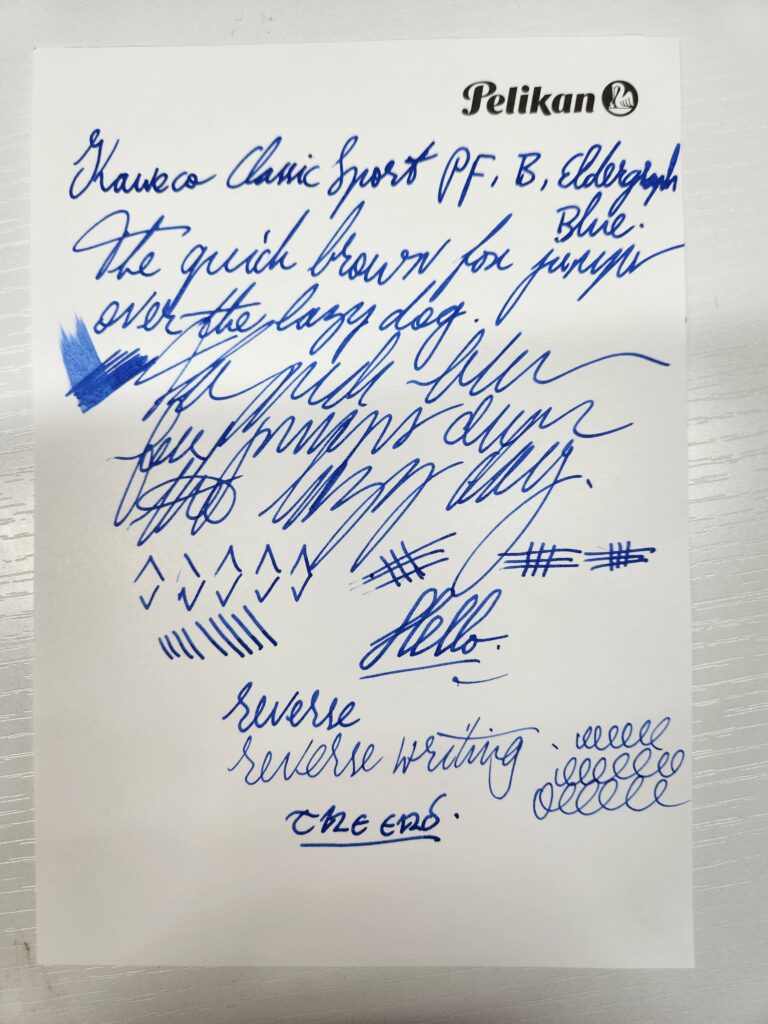 Pelikan
Kaweco Classic Sport PF, B, Eldergraph
Blue.
The quick brown fox jumps
over the lazy dog.
fox jumps
the lazy
Hello.
reverse
reverse writing.
THE END.